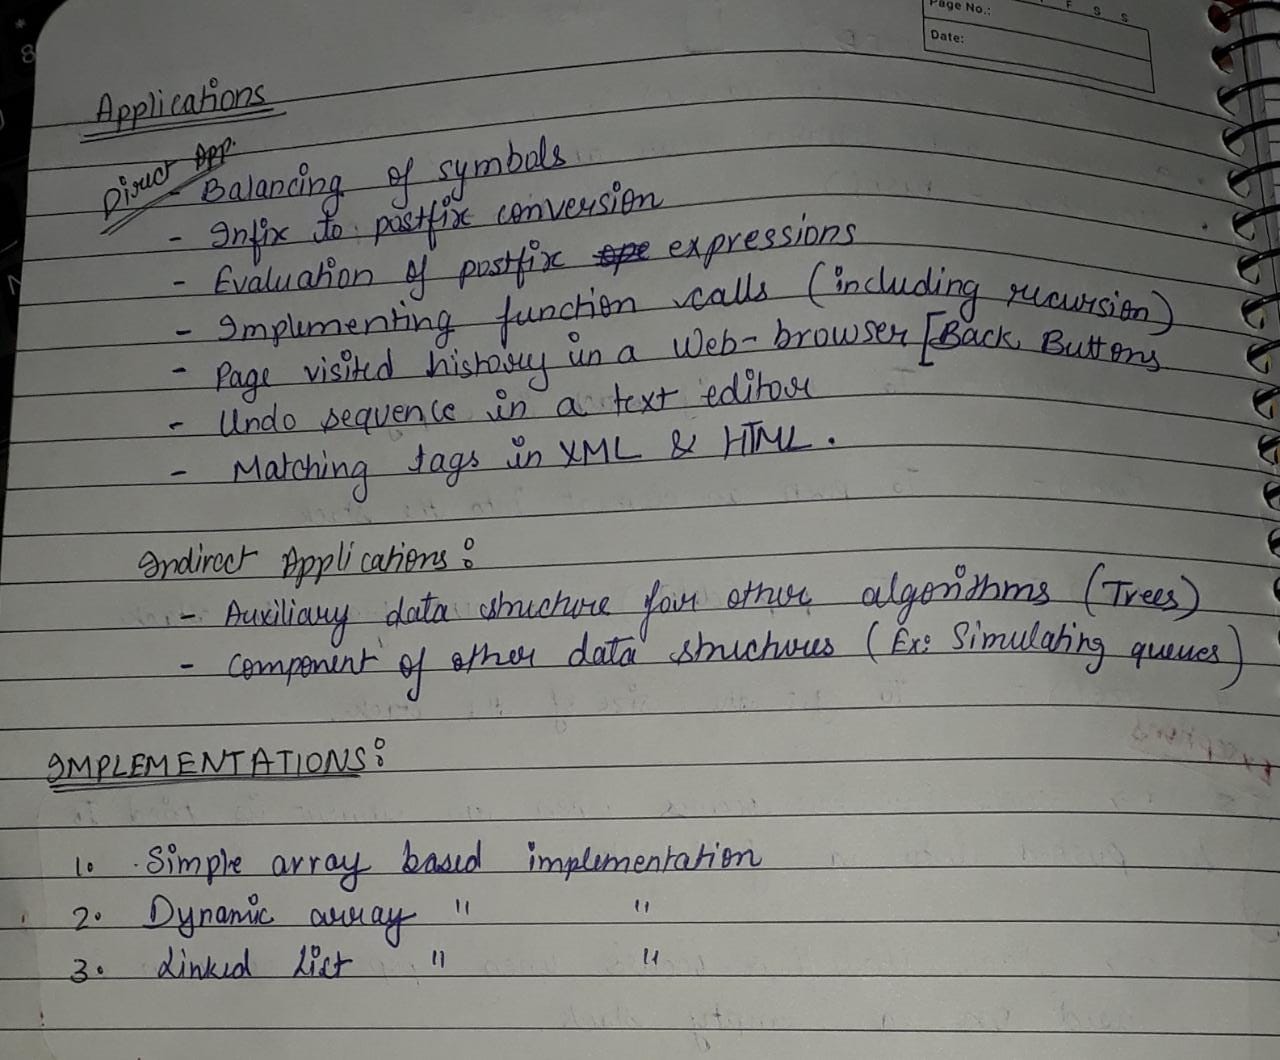 Page No.:
F S S
Date:
Applications
Direct App.
- Balancing of symbols
- Infix to postfix conversion
- Evaluation of postfix expressions
- Implementing function calls (including recursion)
- Page visited history in a Web-browser [Back Buttons
- Undo sequence in a text editor
- Matching tags in XML & HTML.
Indirect Applications:
- Auxiliary data structure for other algorithms (Trees)
- Component of other data structures (Ex: Simulating queues)
IMPLEMENTATIONS:
1. Simple array based implementation
2. Dynamic array " "
3. Linked List " "